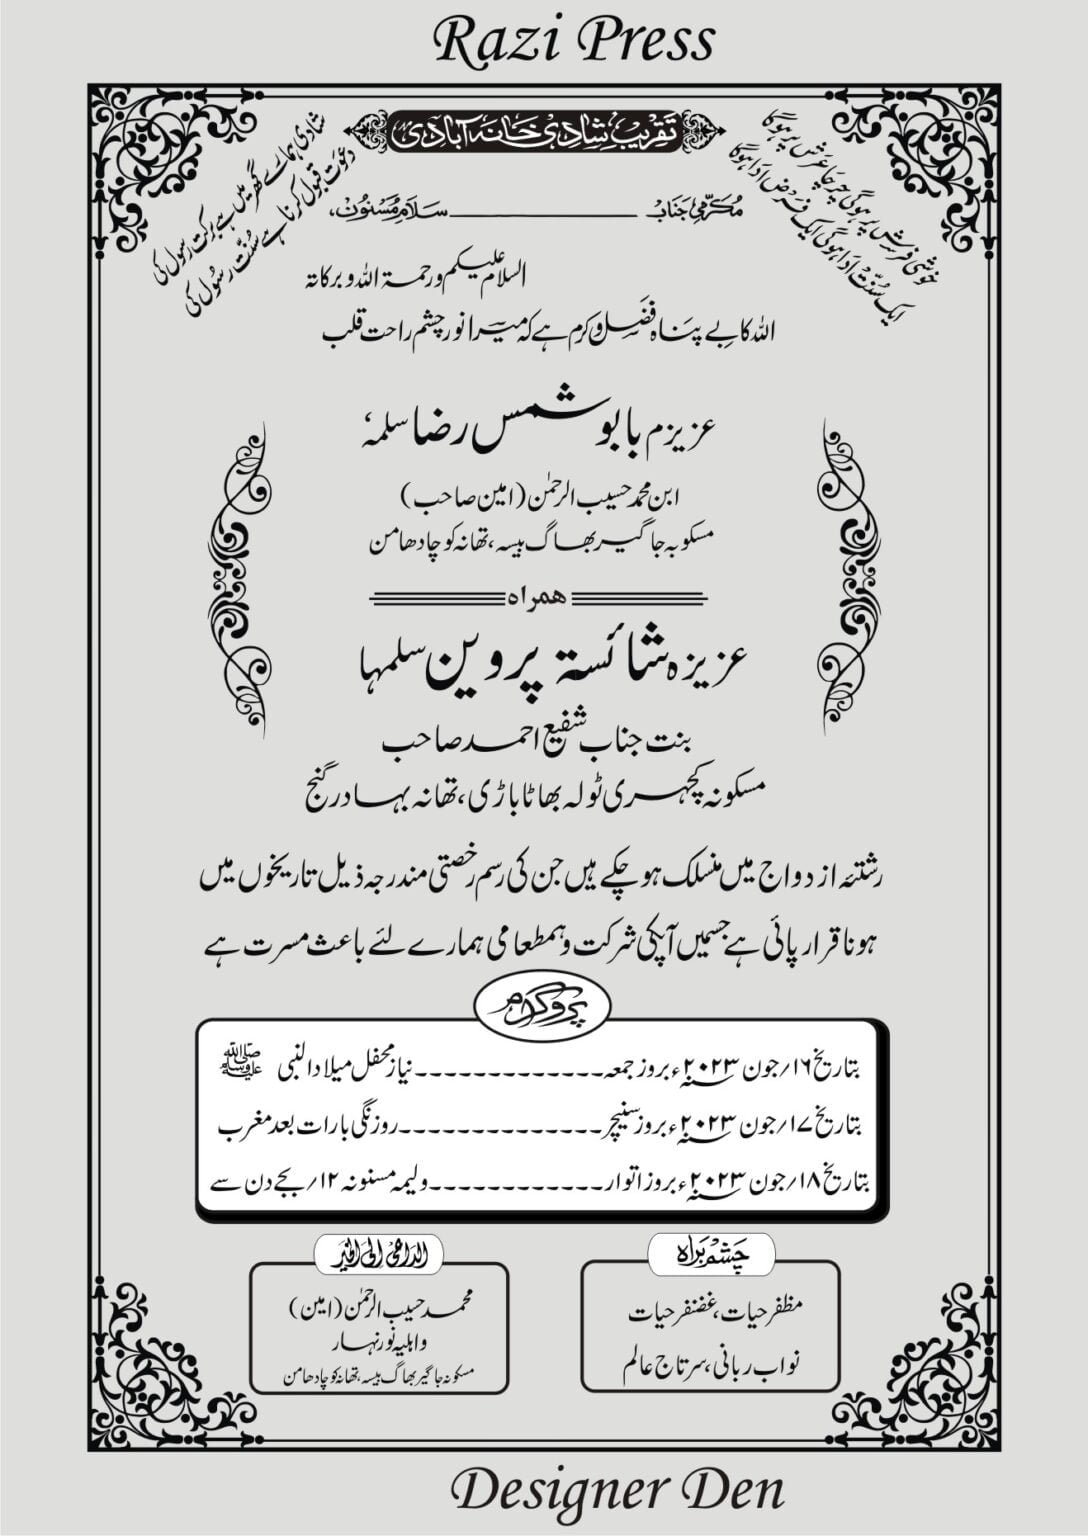 Razi Press
تقریب شادی خانہ آبادی
خوشی فرش پر ہوگی چرچا عرش پہ ہوگا
ایک سنّت ادا ہوگی ایک فرض ادا ہوگا
شادی ہمارے گھر میں ہے برکت رسول کی
دعوت قبول کرنا ہے سنّت رسول کی
مکرمی جناب ـــــــــــــــــــــ سلام مسنون،
السلام علیکم ورحمۃ اللہ وبرکاتہ
اللہ کا بے پناہ فضل وکرم ہے کہ میرا نور چشم راحت قلب
عزیزم بابو شمس رضا سلمہٗ
ابن محمد حسیب الرحمٰن (امین صاحب)
مسکونہ جاگیر بھاگ بیسہ، تھانہ کوچادھامن
ہمراہ
عزیزہ شائستہ پروین سلمہا
بنت جناب شفیع احمد صاحب
مسکونہ کچہری ٹولہ بھاٹاباڑی، تھانہ بہادر گنج
رشتئہ ازدواج میں منسلک ہو چکے ہیں جن کی رسم رخصتی مندرجہ ذیل تاریخوں میں
ہونا قرار پائی ہے جسمیں آپکی شرکت وہمطعامی ہمارے لئے باعث مسرت ہے
پروگرام
بتاریخ ۱۶/جون ۲۰۲۳؁ء بروز جمعہ-------------نیاز محفل میلاد النبی ﷺ
بتاریخ ۱۷/جون ۲۰۲۳؁ء بروز سنیچر--------------روزنگی بارات بعد مغرب
بتاریخ ۱۸/جون ۲۰۲۳؁ء بروز اتوار------------ولیمہ مسنونہ ۱۲/بجے دن سے
چشم براہ
مظفر حیات، غضنفر حیات
نواب ربانی، سرتاج عالم
الداعی الی الخیر
محمد حسیب الرحمٰن (امین)
واہلیہ نور نہار
مسکونہ جاگیر بھاگ بیسہ، تھانہ کوچادھامن
Designer Den